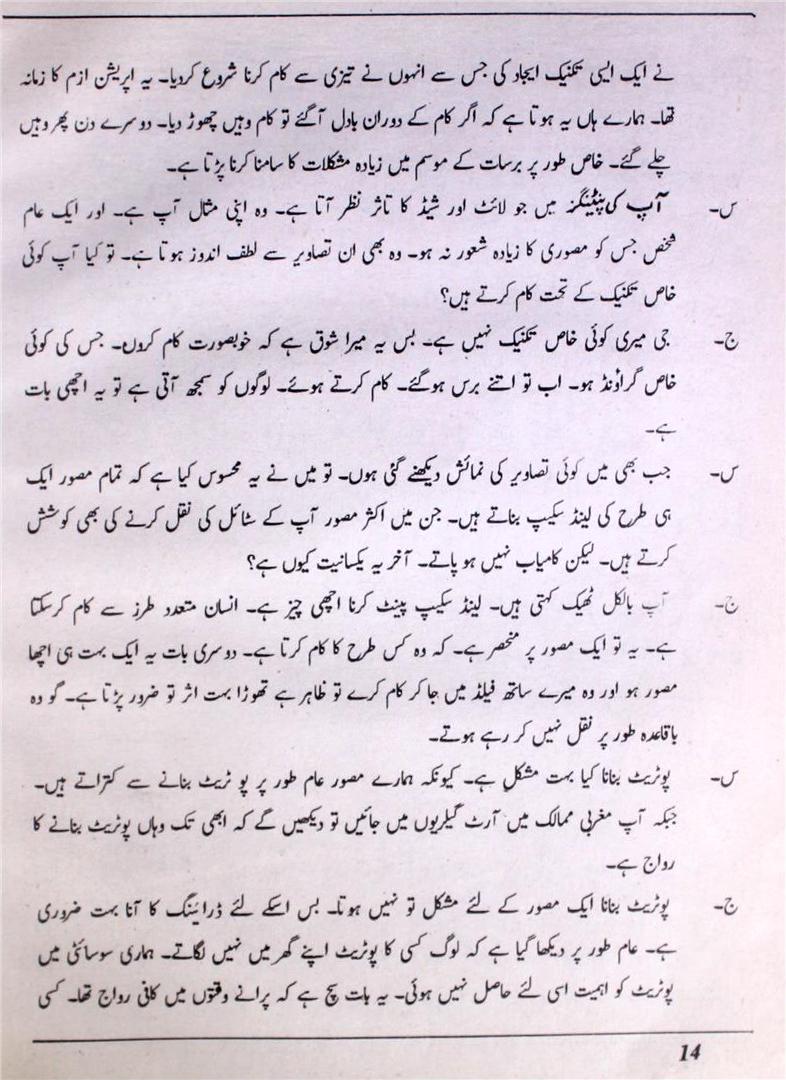 نے ایک ایسی تکنیک ایجاد کی جس سے انہوں نے تیزی سے کام کرنا شروع کردیا۔ یہ اپریشن ازم کا زمانہ
تھا۔ ہمارے ہاں یہ ہوتا ہے کہ اگر کام کے دوران بادل آگئے تو کام وہیں چھوڑ دیا۔ دوسرے دن پھر وہیں
چلے گئے۔ خاص طور پر برسات کے موسم میں زیادہ مشکلات کا سامنا کرنا پڑتا ہے۔
س۔ آپ کی پینٹینگز میں جو لائٹ اور شیڈ کا تاثر نظر آتا ہے۔ وہ اپنی مثال آپ ہے۔ اور ایک عام
شخص جس کو مصوری کا زیادہ شعور نہ ہو۔ وہ بھی ان تصاویر سے لطف اندوز ہوتا ہے۔ تو کیا آپ کوئی
خاص تکنیک کے تحت کام کرتے ہیں؟
ج۔ جی میری کوئی خاص تکنیک نہیں ہے۔ بس یہ میرا شوق ہے کہ خوبصورت کام کروں۔ جس کی کوئی
خاص گراؤنڈ ہو۔ اب تو اتنے برس ہوگئے۔ کام کرتے ہوئے۔ لوگوں کو سمجھ آتی ہے تو یہ اچھی بات
ہے۔
س۔ جب بھی میں کوئی تصاویر کی نمائش دیکھنے گئی ہوں۔ تو میں نے یہ محسوس کیا ہے کہ تمام مصور ایک
ہی طرح کی لینڈ سکیپ بناتے ہیں۔ جن میں اکثر مصور آپ کے سٹائل کی نقل کرنے کی بھی کوشش
کرتے ہیں۔ لیکن کامیاب نہیں ہو پاتے۔ آخر یہ یکسانیت کیوں ہے؟
ج۔ آپ بالکل ٹھیک کہتی ہیں۔ لینڈ سکیپ پینٹ کرنا اچھی چیز ہے۔ انسان متعدد طرز سے کام کرسکتا
ہے۔ یہ تو ایک مصور پر منحصر ہے۔ کہ وہ کس طرح کا کام کرتا ہے۔ دوسری بات یہ ایک بہت ہی اچھا
مصور ہو اور وہ میرے ساتھ فیلڈ میں جا کر کام کرے تو ظاہر ہے تھوڑا بہت اثر تو ضرور پڑتا ہے۔ گو وہ
باقاعدہ طور پر نقل نہیں کر رہے ہوتے۔
س۔ پوٹریٹ بنانا کیا بہت مشکل ہے۔ کیونکہ ہمارے مصور عام طور پر پو ٹریٹ بنانے سے کتراتے ہیں۔
جبکہ آپ مغربی ممالک میں آرٹ گیلریوں میں جائیں تو دیکھیں گے کہ ابھی تک وہاں پوٹریٹ بنانے کا
رواج ہے۔
ج۔ پوٹریٹ بنانا ایک مصور کے لئے مشکل تو نہیں ہوتا۔ بس اسکے لئے ڈرائنگ کا آنا بہت ضروری
ہے۔ عام طور پر دیکھا گیا ہے کہ لوگ کسی کا پوٹریٹ اپنے گھر میں نہیں لگاتے۔ ہماری سوسائٹی میں
پوٹریٹ کو اہمیت اسی لئے حاصل نہیں ہوئی۔ یہ بات سچ ہے کہ پرانے وقتوں میں کافی رواج تھا۔ کسی
14